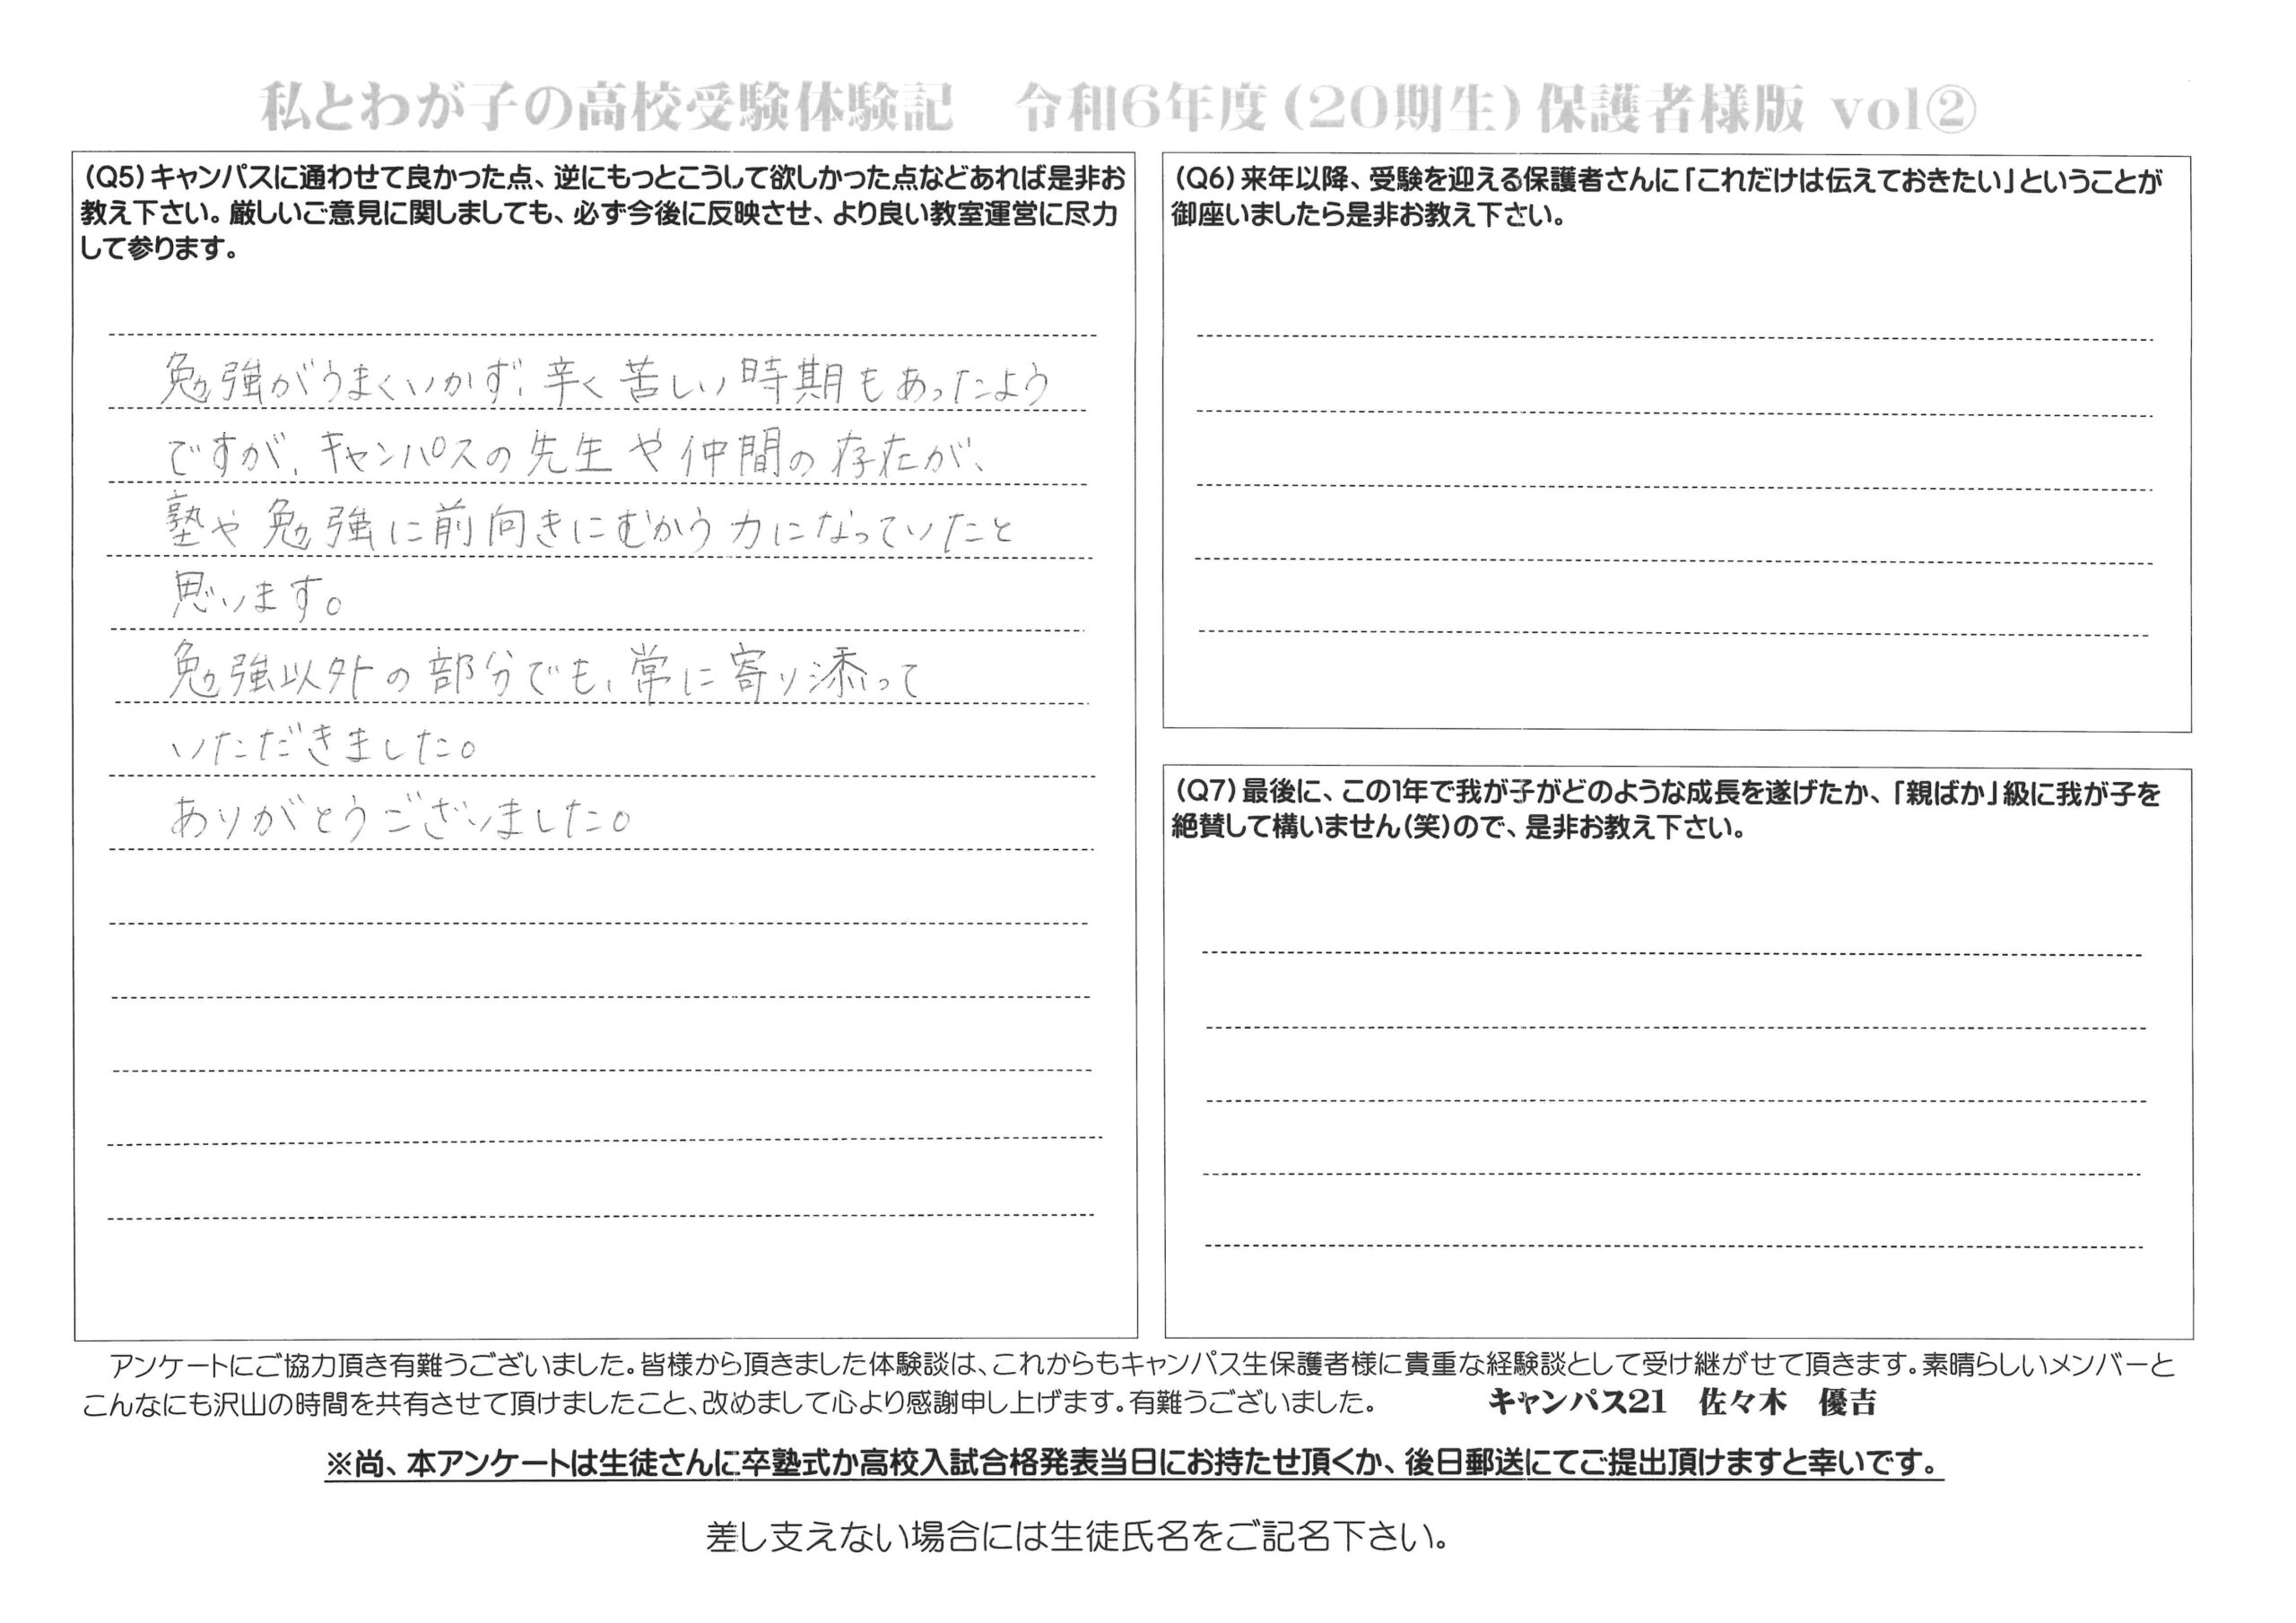 私とわが子の高校受験体験記　令和6年度（20期生）保護者様版 vol②
（Q5）キャンパスに通わせて良かった点、逆にもっとこうして欲しかった点などあれば是非お
教え下さい。厳しいご意見に関しましても、必ず今後に反映させ、より良い教室運営に尽力
して参ります。
勉強がうまくいかず、辛く苦しい時期もあったよう
ですが、キャンパスの先生や仲間の存在が、
塾や勉強に前向きにむかう力になっていたと
思います。
勉強以外の部分でも、常に寄り添って
いただきました。
ありがとうございました。
（Q6）来年以降、受験を迎える保護者さんに「これだけは伝えておきたい」ということが
御座いましたら是非お教え下さい。
（Q7）最後に、この1年で我が子がどのような成長を遂げたか、「親ばか」級に我が子を
絶賛して構いません（笑）ので、是非お教え下さい。
アンケートにご協力頂き有難うございました。皆様から頂きました体験談は、これからもキャンパス生保護者様に貴重な経験談として受け継がせて頂きます。素晴らしいメンバーと
こんなにも沢山の時間を共有させて頂けましたこと、改めまして心より感謝申し上げます。有難うございました。　キャンパス21　佐々木　優吉
※尚、本アンケートは生徒さんに卒塾式か高校入試合格発表当日にお持たせ頂くか、後日郵送にてご提出頂けますと幸いです。
差し支えない場合には生徒氏名をご記名下さい。